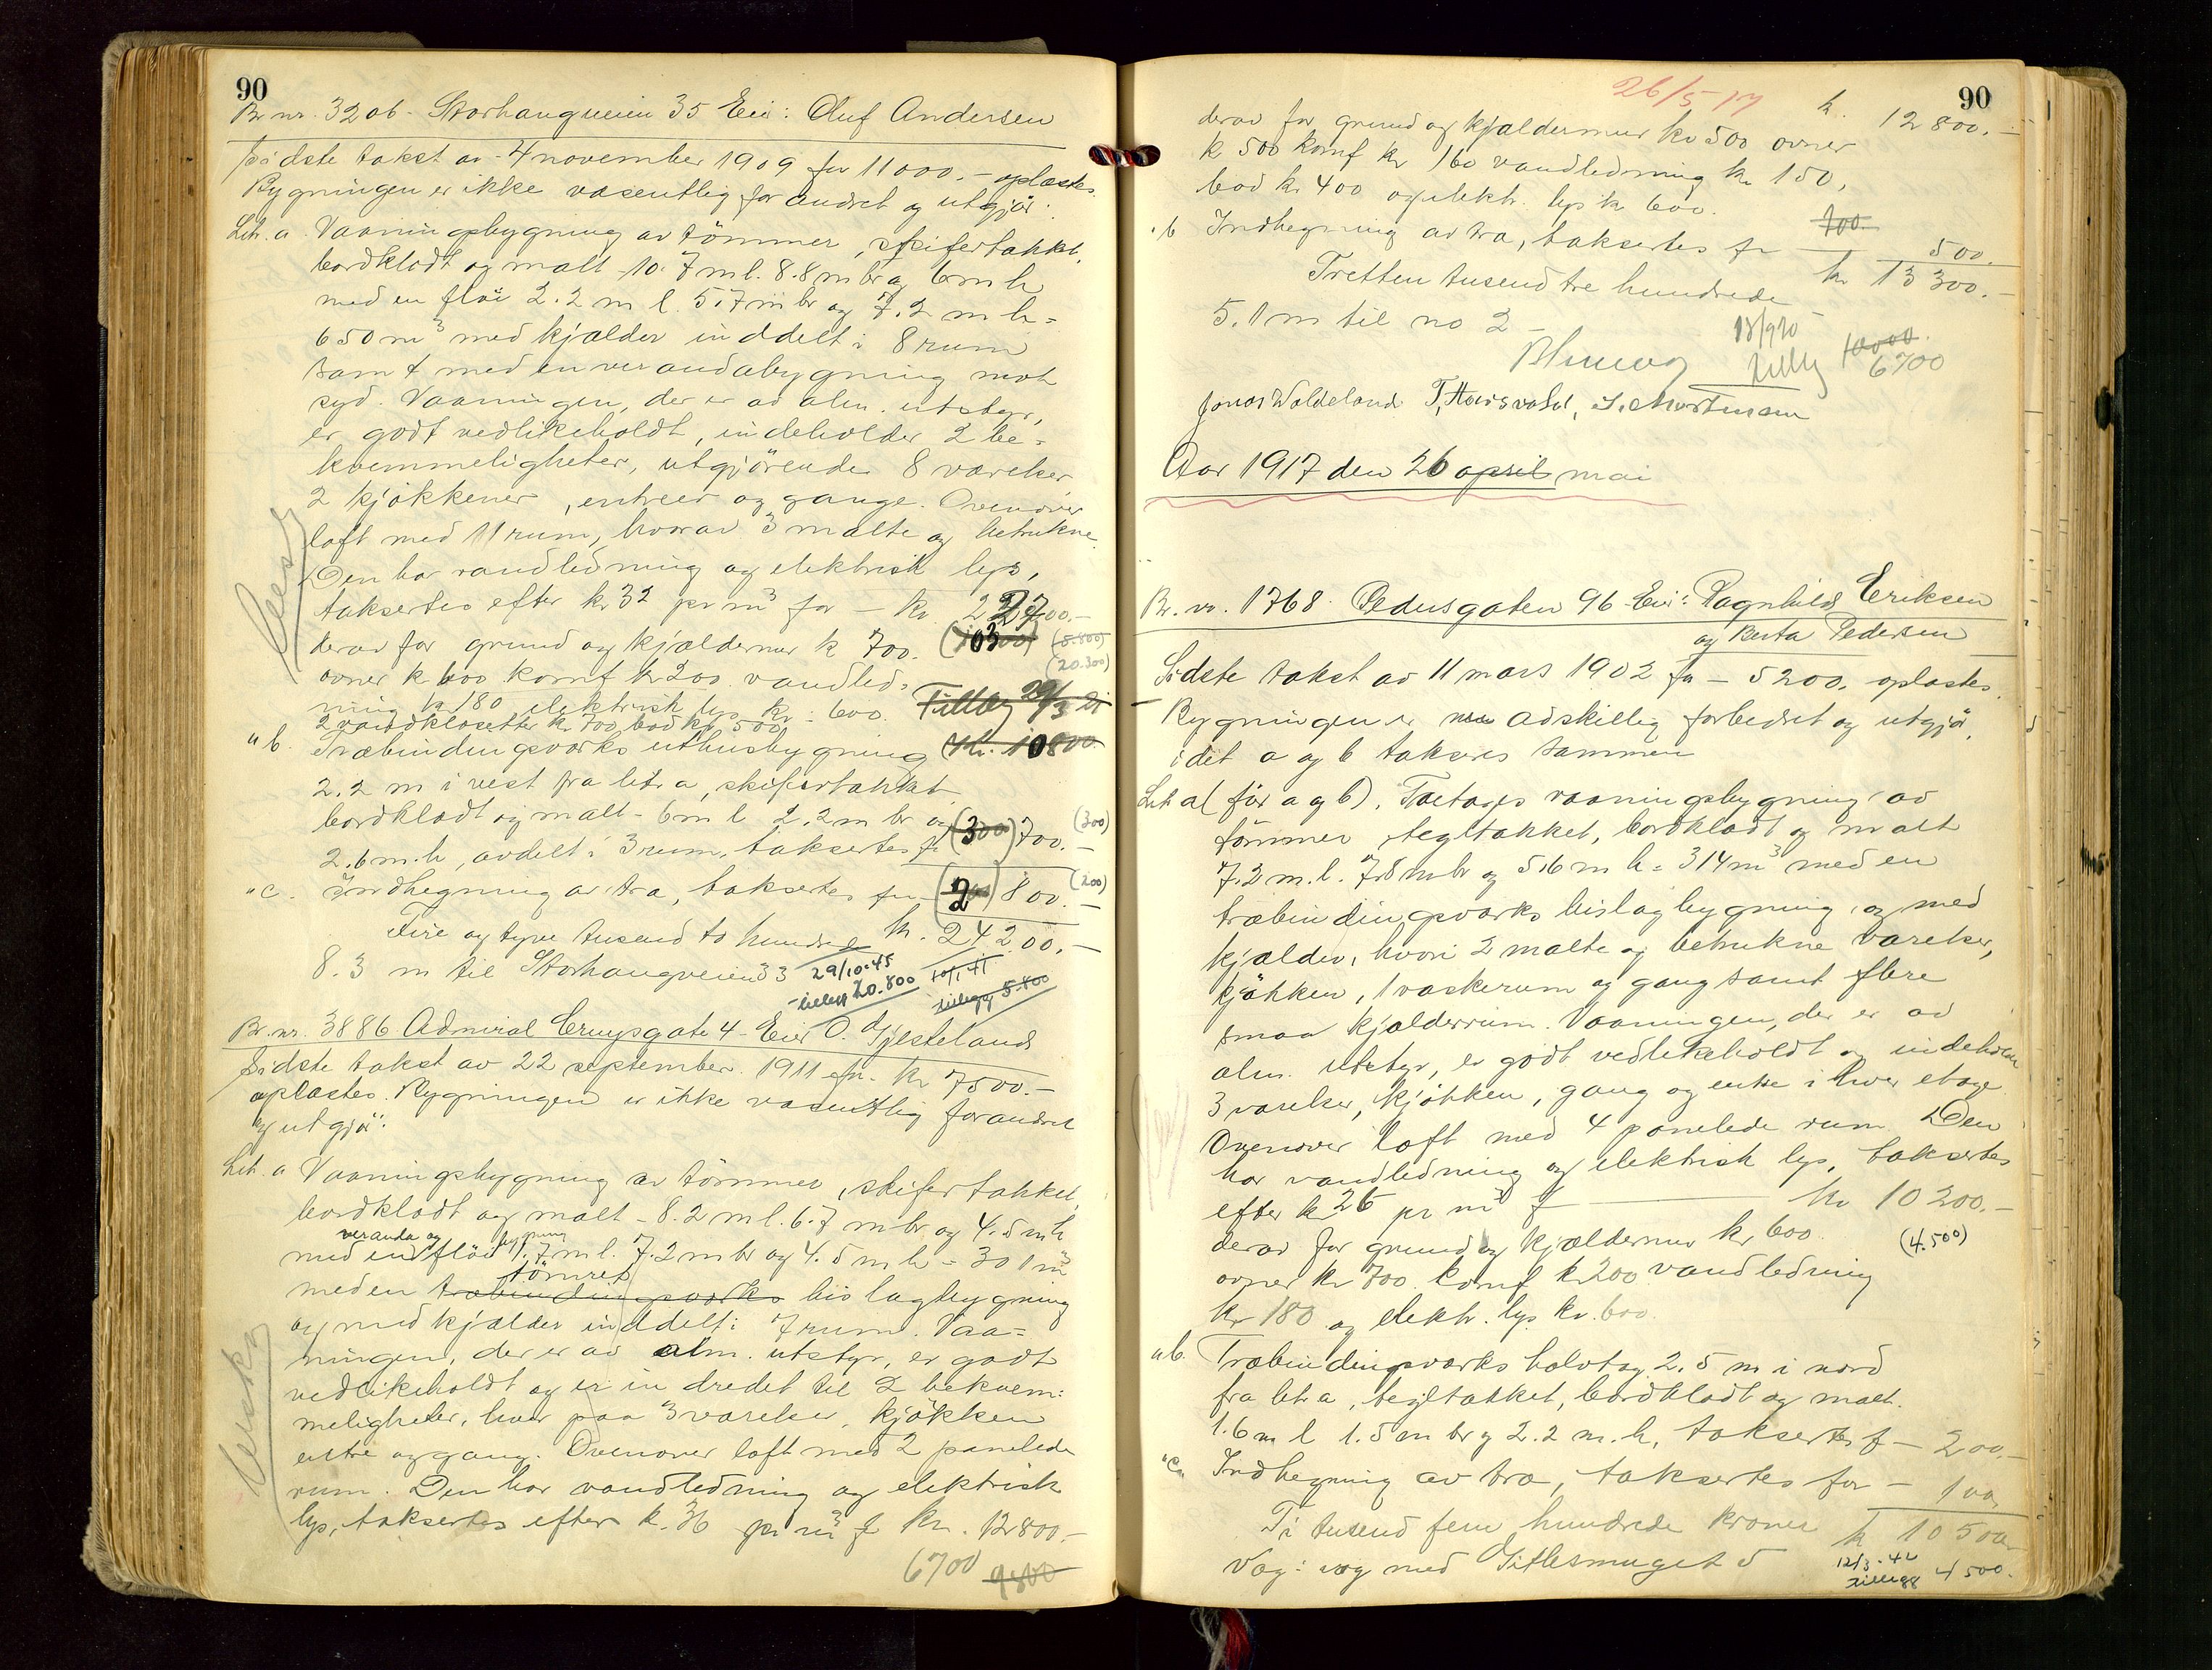 90
Br. nr. 320b - Storhaugveien 35 Eier: Oluf Andersen
Sidste takst av 4 november 1909 for 11000.- oplæstes.
Bygningen er ikke væsentlig forandret og utgjør:
Litr. a Vaaningsbygning av tømmer, skifertækket,
bordklædt og malt - 10.7 m l. 8.8 m br og 6 m h
med en fløi 2.2 m l. 5.7 m br og 7.2 m h =
650 m³ med kjælder inddelt i 8 rum
samt med en verandabygning mot
syd. Vaaningen, der er av alm. utstyr,
er godt vedlikeholdt, indeholder 2 be-
kvemmeligheter, utgjørende 8 værelser
2 kjøkkener, entreer og gange. Ovenover
loft med 11 rum, hvorav 3 malte og betrukne.
Den har vandledning og elektrisk lys,
taksertes efter kr 32 pr m³ for - kr. 22700.-
derav for grund og kjældermur k 700. (10300) (5.800)
(20.300)
ovner k 600 komf kr 200 vandled-
ning kr 180 elektrisk lys kr. 600. Tillæg 29/3
2 vandklosetter kr. 700 bod kr. 500
" b. Træbindingsværks uthusbygning (kr. 10800
2.2 m i vest fra litr a, skifertækket
bordklædt og malt - 6 m l 2.2 m br og (300) (300)
2.6 m.h, avdelt i 3 rum, taksertes for 700.-
" c. Indhegning av træ, taksertes for (200) 800.- (200)
Fire og tyve tusend to hundrede kr. 24200.-
8.3 m til Storhaugveien 33 29/10-45 10/1 41
tillegg 20.800 tillegg 5.800
Br. nr. 3886 Admiral Cruysgate 4 - Eier O. Gjesteland
Sidste takst av 22 september 1911 for kr 7500.-
oplæstes. Bygningen er ikke væsentlig forandret
og utgjør:
Litr. a Vaaningsbygning av tømmer, skifertækket,
bordklædt og malt - 8.2 m l. 6.7 m br og 4.5 m h
veranda og bygning
med en fløi 1.7 m l. 7.2 m br og 4.5 m h = 301 m³
tømret
med en træbindingsværks bislagbygning
og med kjælder inddelt i 7 rum. Vaa-
ningen, der er av alm. utstyr, er godt
vedlikeholdt og er indredet til 2 bekvem-
meligheter, hver paa 3 værelser, kjøkken
entre og gang. Ovenover loft med 2 panelede
rum. Den har vandledning og elektrisk
lys, taksertes efter k. 36 pr m³ f kr. 12800.-
6700 9800
26/5 17 90
k. 12800.-
derav for grund og kjældermur kr 500 ovner
k 500 komf kr 160 vandledning kr 150,
bod kr 400 og elektr. lys kr 600.
" b Indhegning av træ, taksertes for 700 500.
Tretten tusend tre hundrede kr 13300.-
5.1 m til no 2 -
18/9 20
tillæg 10000
6700
Jonas Waldeland T. Hausvold, S. Mortensen
Aar 1917 den 26 april mai
Br. nr. 1768. Pedersgaten 96 - Eier: Ragnhild Eriksen
og Berta Pedersen
Sidste takst av 11 mars 1902 for - 5200. oplæstes.
Bygningen er adskillig forbedret og utgjør,
idet a og b takseres sammen
Litr a (før a og b). Toetages vaaningsbygning av
tømmer, tegltækket, bordklædt og malt
7.2 m.l. 7.8 m br og 5.6 m h = 314 m³ med en
træbindingsværks bislagbygning, og med
kjælder, hvori 2 malte og betrukne værelser,
kjøkken, 1 vaskerum og gang samt flere
smaa kjælderrum. Vaaningen, der er av
alm. utstyr, er godt vedlikeholdt og indeholder
3 værelser, kjøkken, gang og entre i hver etage
Ovenover loft med 4 panelede rum. Den
har vandledning og elektrisk lys, taksertes
efter k 26 pr m³ f kr 10200.-
derav for grund og kjældermur kr, 600. (4.500)
ovner kr 700. komf kr 200 vandledning
kr 180 og elektr. lys kr. 600
" b. Træbindingsværks halvtag 2.5 m i nord
fra litr a, tegltækket, bordklædt og malt.
1.6 m l 1.5 m br og 2.2 m.h, taksertes f - 200.-
" c. Indhegning av træ, taksertes for - 100.
Ti tusend fem hundrede kroner k 10500.-
Væg i væg med Gitlesmuget 5 12/3-42
tillegg 4500.